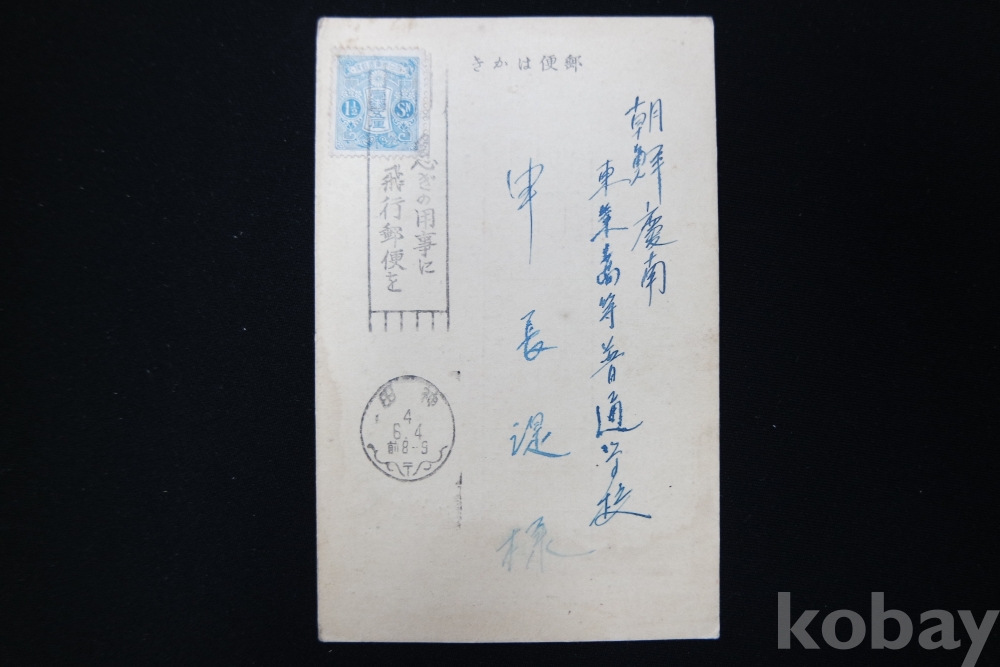 郵便はかき
朝鮮慶南
東莱高等普通学校
申長湜
様
1½ Sn
急ぎの用事に
飛行郵便を
4
6.4
前8-9
kobay